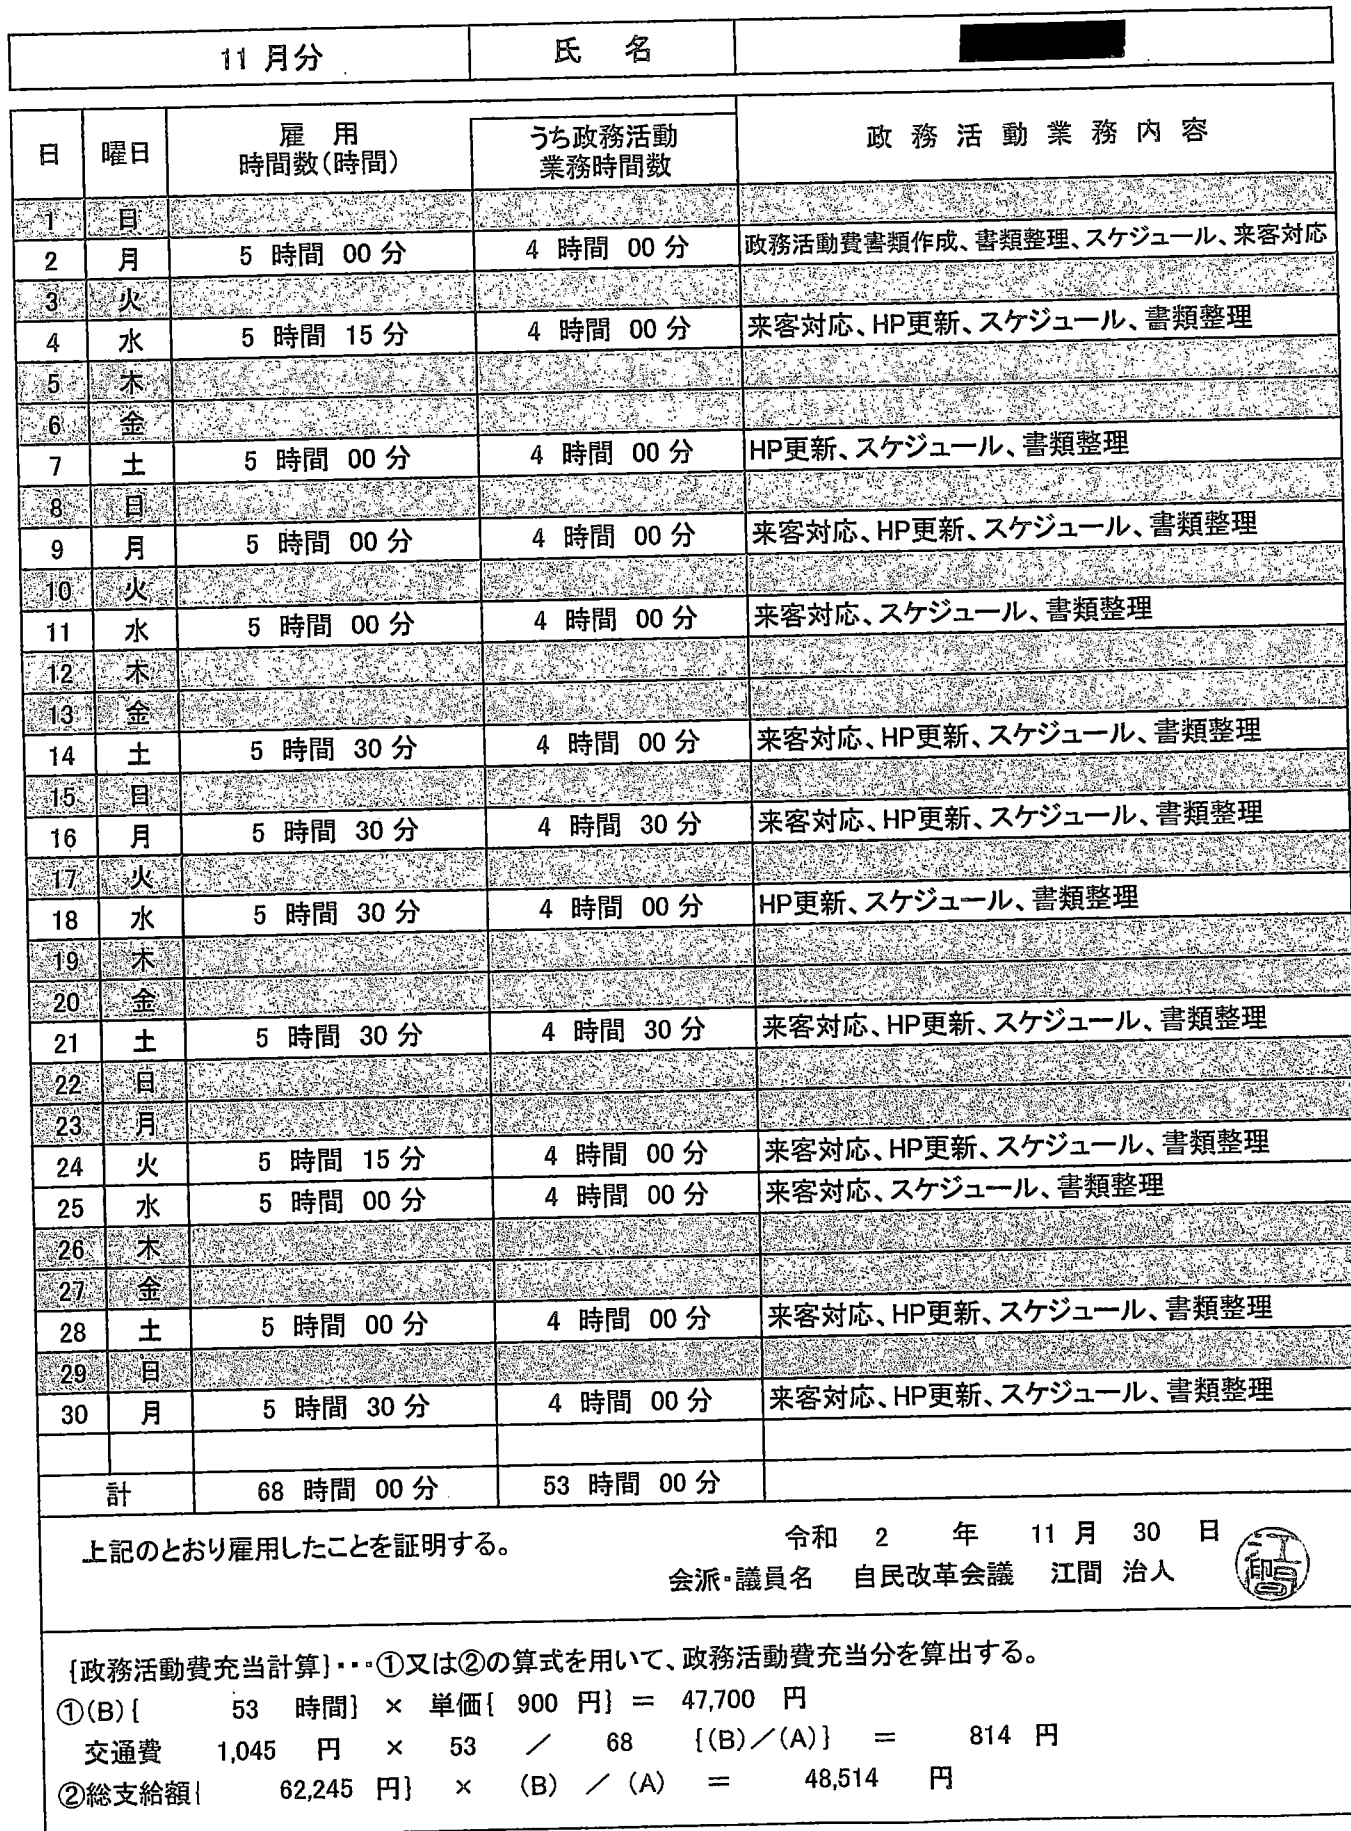 11 月分 氏 名
日 曜日 雇 用 時間数(時間) うち政務活動 業務時間数 政 務 活 動 業 務 内 容
1 日
2 月 5 時間 00 分 4 時間 00 分 政務活動費書類作成、書類整理、スケジュール、来客対応
3 火
4 水 5 時間 15 分 4 時間 00 分 来客対応、HP更新、スケジュール、書類整理
5 木
6 金
7 土 5 時間 00 分 4 時間 00 分 HP更新、スケジュール、書類整理
8 日
9 月 5 時間 00 分 4 時間 00 分 来客対応、HP更新、スケジュール、書類整理
10 火
11 水 5 時間 00 分 4 時間 00 分 来客対応、スケジュール、書類整理
12 木
13 金
14 土 5 時間 30 分 4 時間 00 分 来客対応、HP更新、スケジュール、書類整理
15 日
16 月 5 時間 30 分 4 時間 30 分 来客対応、HP更新、スケジュール、書類整理
17 火
18 水 5 時間 30 分 4 時間 00 分 HP更新、スケジュール、書類整理
19 木
20 金
21 土 5 時間 30 分 4 時間 30 分 来客対応、HP更新、スケジュール、書類整理
22 日
23 月
24 火 5 時間 15 分 4 時間 00 分 来客対応、HP更新、スケジュール、書類整理
25 水 5 時間 00 分 4 時間 00 分 来客対応、スケジュール、書類整理
26 木
27 金
28 土 5 時間 00 分 4 時間 00 分 来客対応、HP更新、スケジュール、書類整理
29 日
30 月 5 時間 30 分 4 時間 00 分 来客対応、HP更新、スケジュール、書類整理
計 68 時間 00 分 53 時間 00 分
上記のとおり雇用したことを証明する。 令和 2 年 11 月 30 日
会派・議員名 自民改革会議 江間 治人 江間印
{政務活動費充当計算}・・・①又は②の算式を用いて、政務活動費充当分を算出する。
①(B){ 53 時間} × 単価{ 900 円} = 47,700 円
交通費 1,045 円 × 53 ／ 68 {(B)／(A)} = 814 円
②総支給額{ 62,245 円} × (B) ／ (A) = 48,514 円